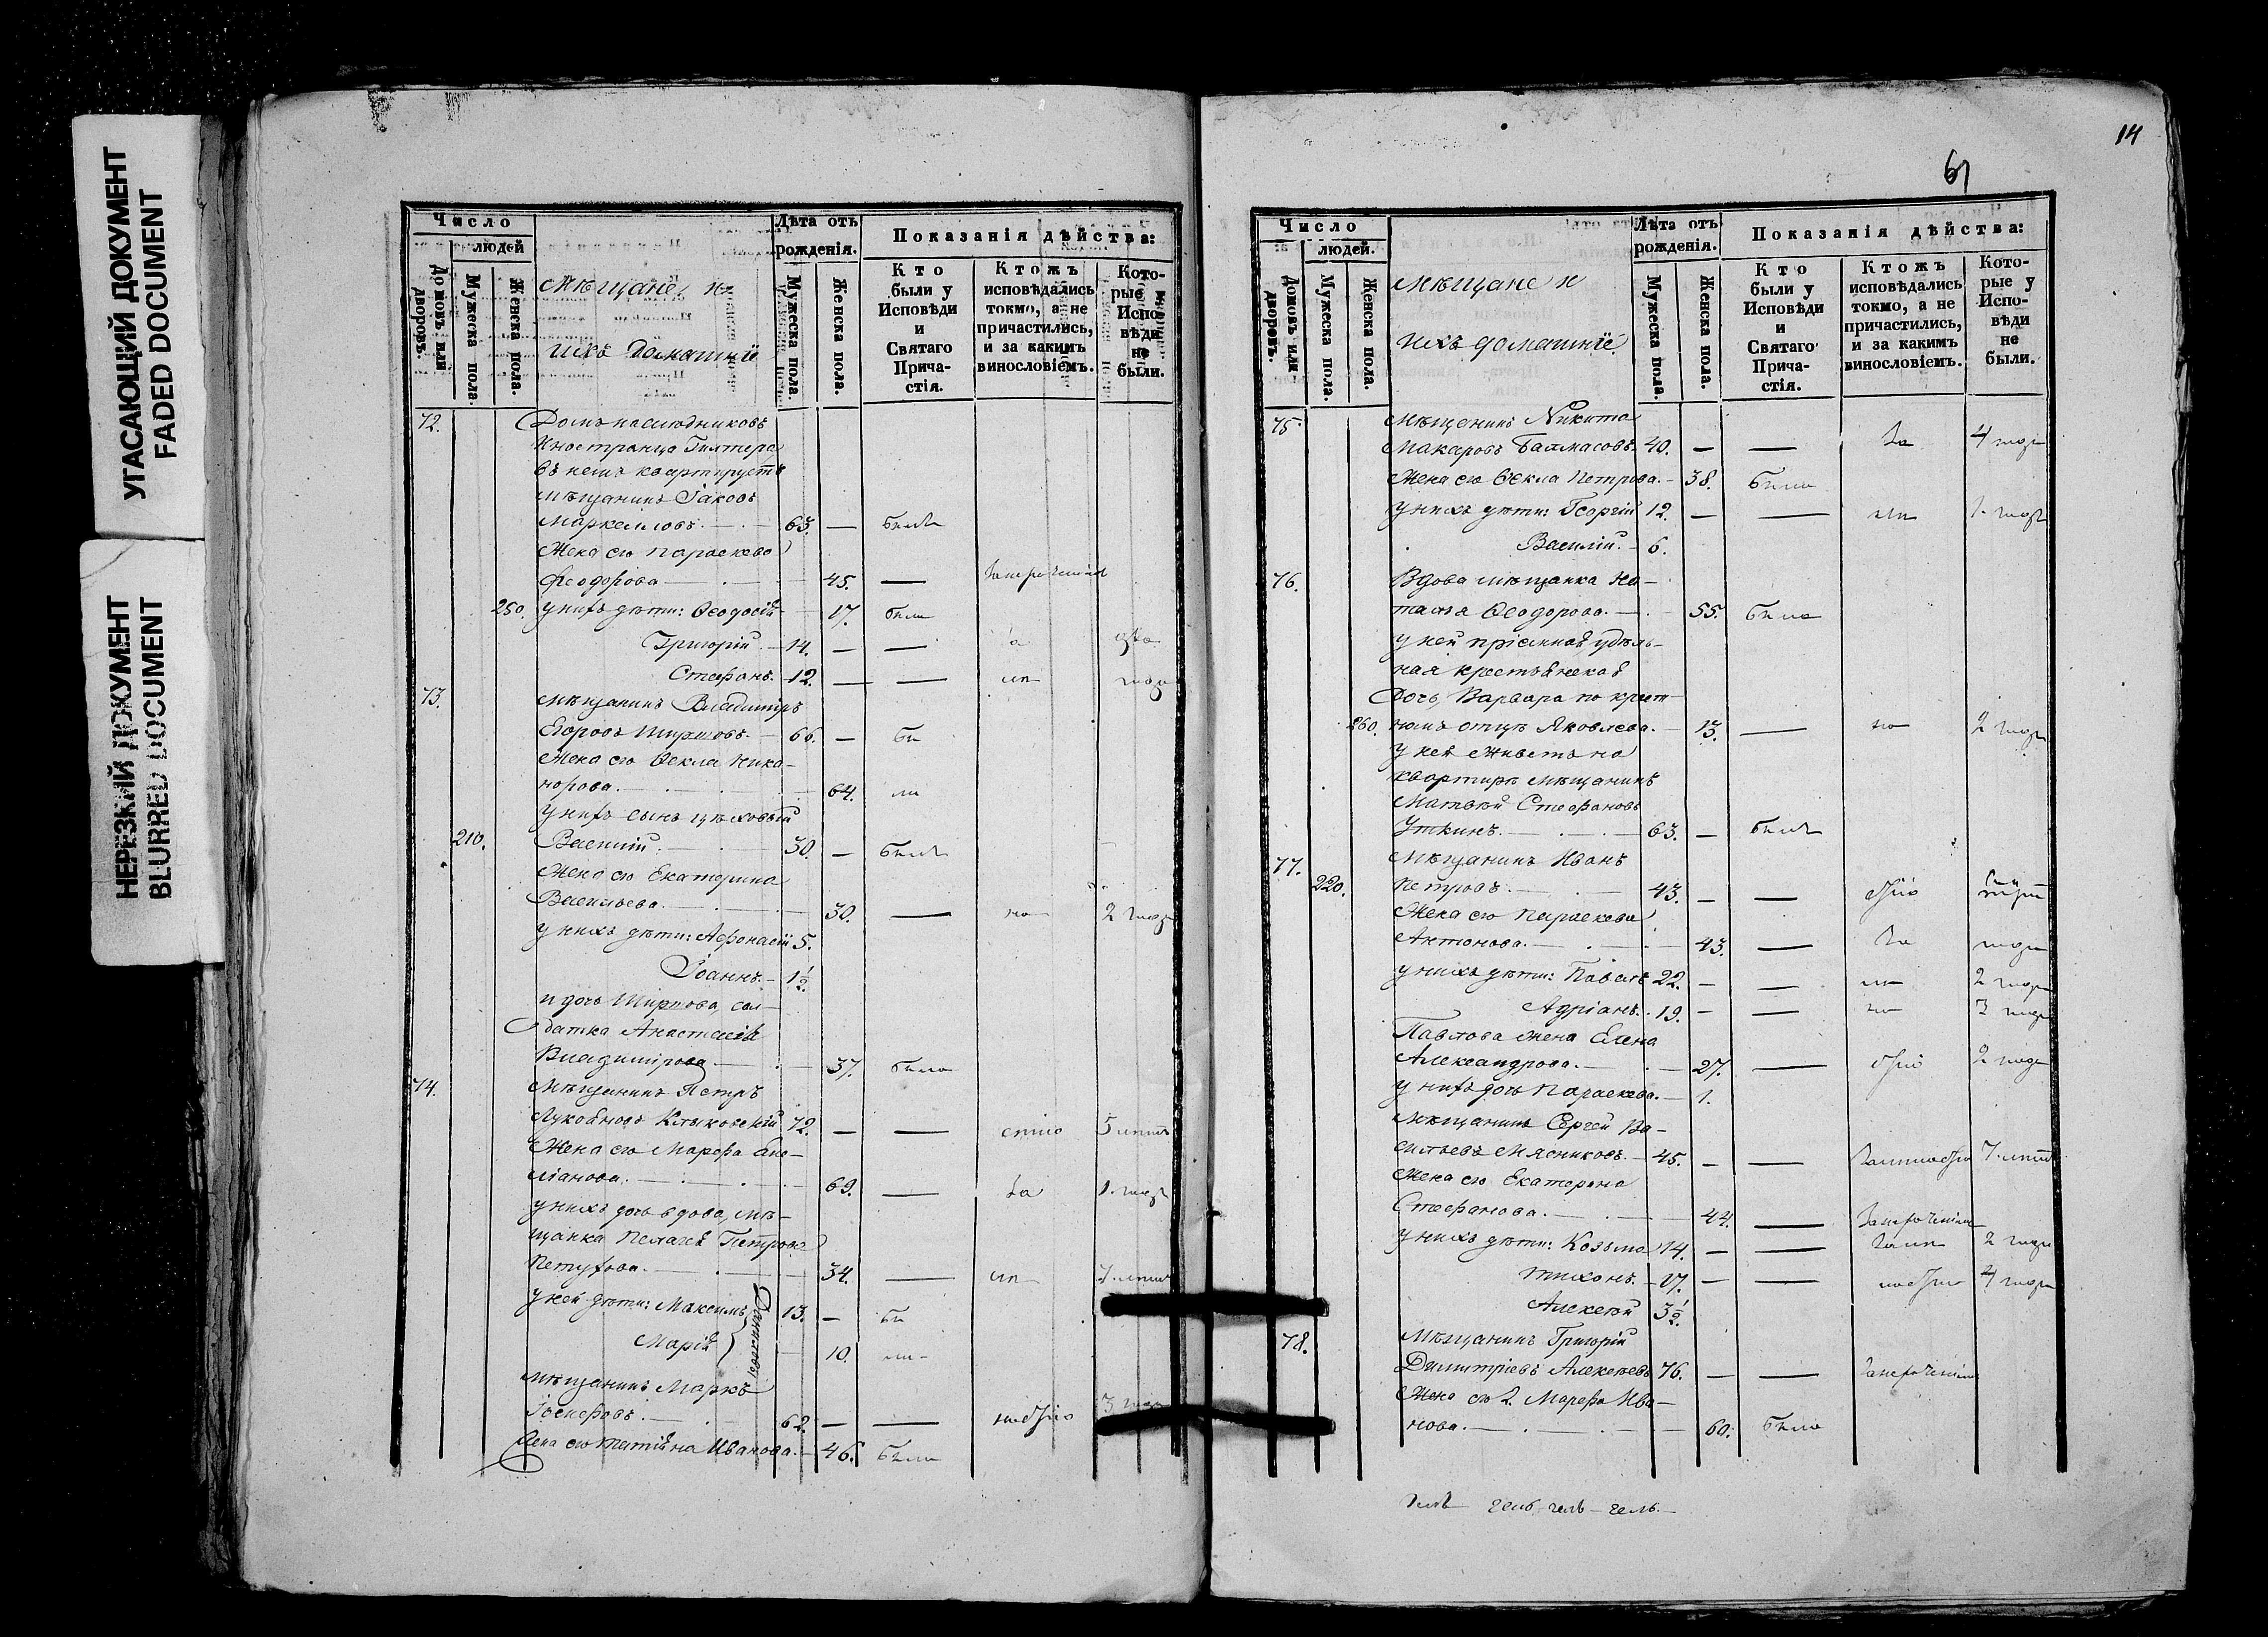 УГАСАЮЩИЙ ДОКУМЕНТ
FADED DOCUMENT
НЕРЕЗКИЙ ДОКУМЕНТ
BLURRED DOCUMENT
Число
людей
Домовъ или дворовъ.
Мужеска пола.
Женска пола.
Мѣщане и
ихъ домашнiе
Лѣта отъ рожденія.
Мужеска пола.
Женска пола.
Показанія дѣйства:
Кто были у Исповѣди и Святаго Причастія.
Ктожъ исповѣдались токмо, а не причастились, и за какимъ винословіемъ.
Которые у Исповѣди не были.
72. Домъ наслѣдниковъ
Иностранца
въ немъ квартируетъ
мѣщанинъ Iаковъ
Маркелловъ. 63. — былъ
Жена его Параскева
Феодорова 45. —
250. у нихъ дѣти: Ѳеодосія 17. была
Григорій 14. — —
Стефанъ. 12. — —
73. Мѣщанинъ Владиміръ
Егоровъ Ширяовъ. 66. — бы
Жена его Ѳекла Ника-
норова. 64. ли
у нихъ сынъ цѣховый
210. Василій. 30. — былъ
Жена его Екатерина
Васильева. 30. — 2 года
у нихъ дѣти: Афонасій 5.
Іоаннъ. 1½
и дочь сол-
датка Анастасія
Владимірова 37. была
74. Мѣщанинъ Петръ
Лукояновъ 72. — —
Жена его Марѳа Еме-
ліанова. 69. — за 1. годъ
у нихъ дочь вдова, мѣ-
щанка Пелагея Петрова
Петухова. 34. —
у ней дѣти: Максимъ 13. — бы
Марія 10. ли
мѣщанинъ Маркъ
Іосифовъ. 62. — —
Жена его Татіана Иванова. 46. была
14
61
Число
людей.
Домовъ или дворовъ.
Мужеска пола.
Женска пола.
Мѣщане и
ихъ домашнiе.
Лѣта отъ рожденія.
Мужеска пола.
Женска пола.
Показанія дѣйства:
Кто были у Исповѣди и Святаго Причастія.
Ктожъ исповѣдались токмо, а не причастились, и за какимъ винословіемъ.
Которые у Исповѣди не были.
75. Мѣщенинъ Никита
Макаровъ Балмасовъ. 40. — — За 4 года
Жена его Ѳекла Петрова. 38. была
у нихъ дѣти: Георгій 12. — — 1. годъ
Василій. 6.
76. Вдова мѣщанка На-
талья Ѳеодорова. 55. была
у ней пріемная удѣль-
ная крестьянская
Дочь, Варвара по крест-
260. номъ отцѣ Яковлева. 13. — 2 года
у нея живетъ на
квартирѣ мѣщанинъ
Матвѣй Стефановъ
Уткинъ. 63. — былъ
77. Мѣщанинъ Иванъ
220. Петровъ. 43. — —
Жена его Параскева
Антонова. 43. — За
у нихъ дѣти: Павелъ 22. — — 2 года
Адріанъ. 19. — — 3 года
Павлова жена Елена
Александрова. 27. — 2 года
у нихъ дочь Параскева. 1.
Мѣщанинъ Сергей Ва-
сильевъ Мясниковъ. 45. — — 7. лѣтъ
Жена его Екатерина
Стефанова. 44. —
у нихъ дѣти: Козьма 14. — — 2 года
Тихонъ. 17. — — 4 года
Алексѣй 3½.
78. Мѣщанинъ Григорій
Димитріевъ Алексѣевъ 76. — —
Жена его 2. Марѳа Ива-
нова. 60. была